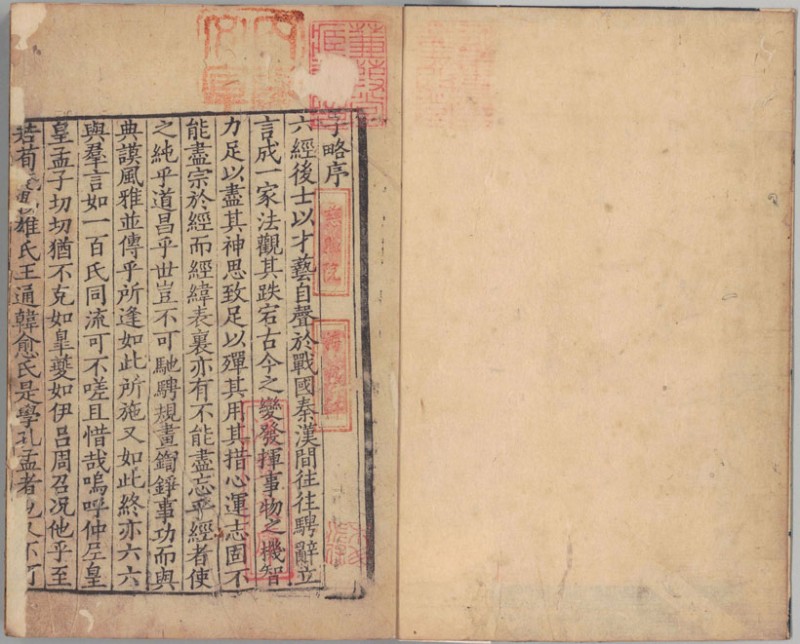 子略序
六經後士以才藝自聲於戰國秦漢間往往騁辭立
言成一家法觀其跌宕古今之變發揮事物之機智
力足以盡其神思致足以殫其用其措心運志固不
能盡宗於經而經緯表裏亦有不能盡忘乎經者使
之純乎道昌乎世豈不可馳騁規畫鏗錚事功而與
典謨風雅並傳乎所逢如此所施又如此終亦六六
與羣言如一百氏同流可不嗟且惜哉嗚呼仲尼皇
皇孟子切切猶不克如皐夔如伊呂周召況他乎至
若荀雄氏王通韓愈氏是學孔孟者也又不可